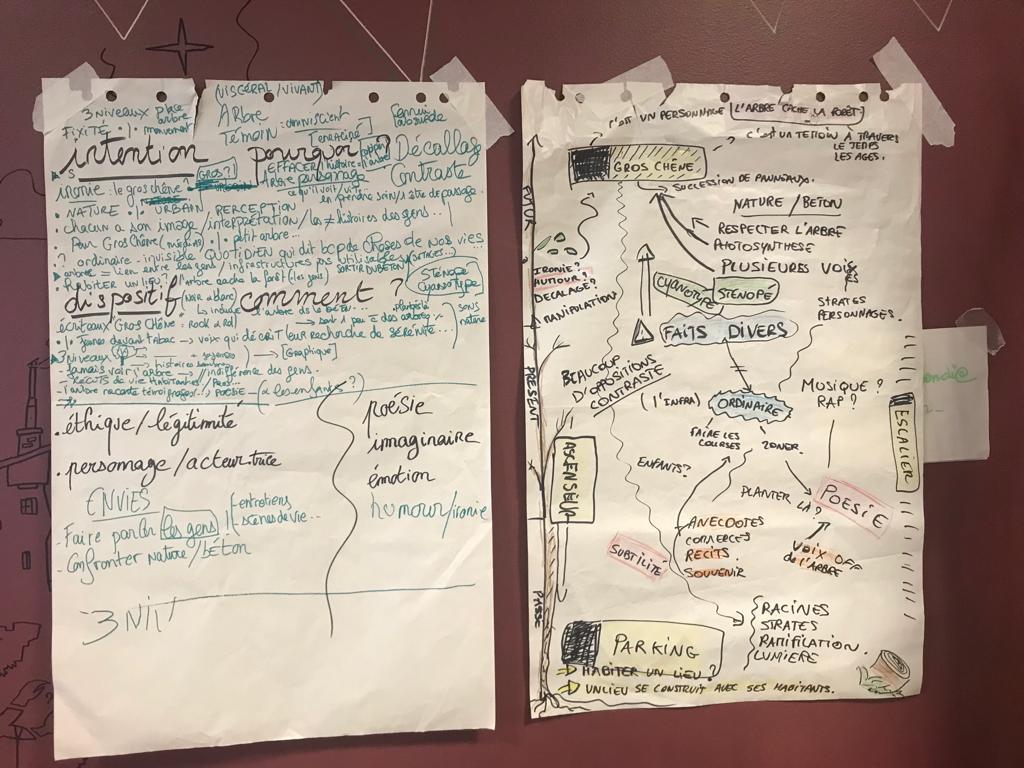 (VISCÉRAL/VIVANT)
3 NIVEAUX place arbre monument
FIXITÉ
ARbre
Témoin : omniscient
[enraciné]
intention pourquoi ? Décallage
Contraste
GROS?]
EFFACER
ironie : le gros chêne?
Arbre personnage
ce qu'il voit/vit
. NATURE URBAIN / PERCEPTION
. chacun a son image / interprétation / les ≠ histoires des gens...
. Pour Gros Chêne petit arbre...
? ordinaire - invisible QUOTIDIEN qui dit bcp de choses de NOS VIES
arbre = lien entre les gens / infrastructures pas utilisables
HABITER UN LIEU? l'arbre cache la forêt (les gens)
SORTIR DU BÉTON
STÉNOPÉ
CYANOTYPE
dispositif / comment ?
(Noir & blanc)
écriteaux "Gros Chêne: Rock &
. Jeunes devant Tabac → voix qui décrit leur recherche de SÉRÉNITÉ...
3 niveaux
→ [Graphique]
Jamais voir l'arbre → indifférence des gens.
- Récits de vie Habitantes/
. l'arbre raconte témoignages... POÉSIE (à les enfants ?)
SONS nature
.éthique/légitimité
.personnage/acteur.trice
poésie
imaginaire
émotion
humour/ironie
ENVIES
- Faire parler les gens
entretiens
scènes de vie...
- Confronter nature/béton
3 NIV
c'est UN PERSONNAGE
L'ARBRE CACHE LA FORÊT
c'est UN TÉMOIN À TRAVERS
LE TEMPS
LES AGES.
GROS CHÊNE
SUCCESSION DE PANNEAUX.
NATURE / BETON
RESPECTER L'ARBRE
PHOTOSYNTHESE
PLUSIEURS VOIX
FUTUR
IRONIE?
HUMOUR?
DECALAGE?
MANIPULATION
CYANOTYPE
STENOPÉ
STRATES
PERSONNAGES.
FAITS DIVERS
PRÉSENT
BEAUCOUP
D'OPPOSITIONS
CONTRASTE
(l'INFRA)
ORDINAIRE
MUSIQUE ?
RAP?
ESCALIER
FAIRE LES
COURSES
ZONER
ASCENSEUR
ENFANTS?
PLANTER
LÀ?
POESIE
ANECDOTES
COMMERCES
RECITS
SOUVENIR
SUBTILITÉ
VOIX OFF
de l'ARBRE
PASSÉ
RACINES
STRATES
RAMIFICATION.
LUMIERE
PARKING
HABITER UN LIEU ?
UN LIEU SE CONSTRUIT AVEC SES HABITANTS.